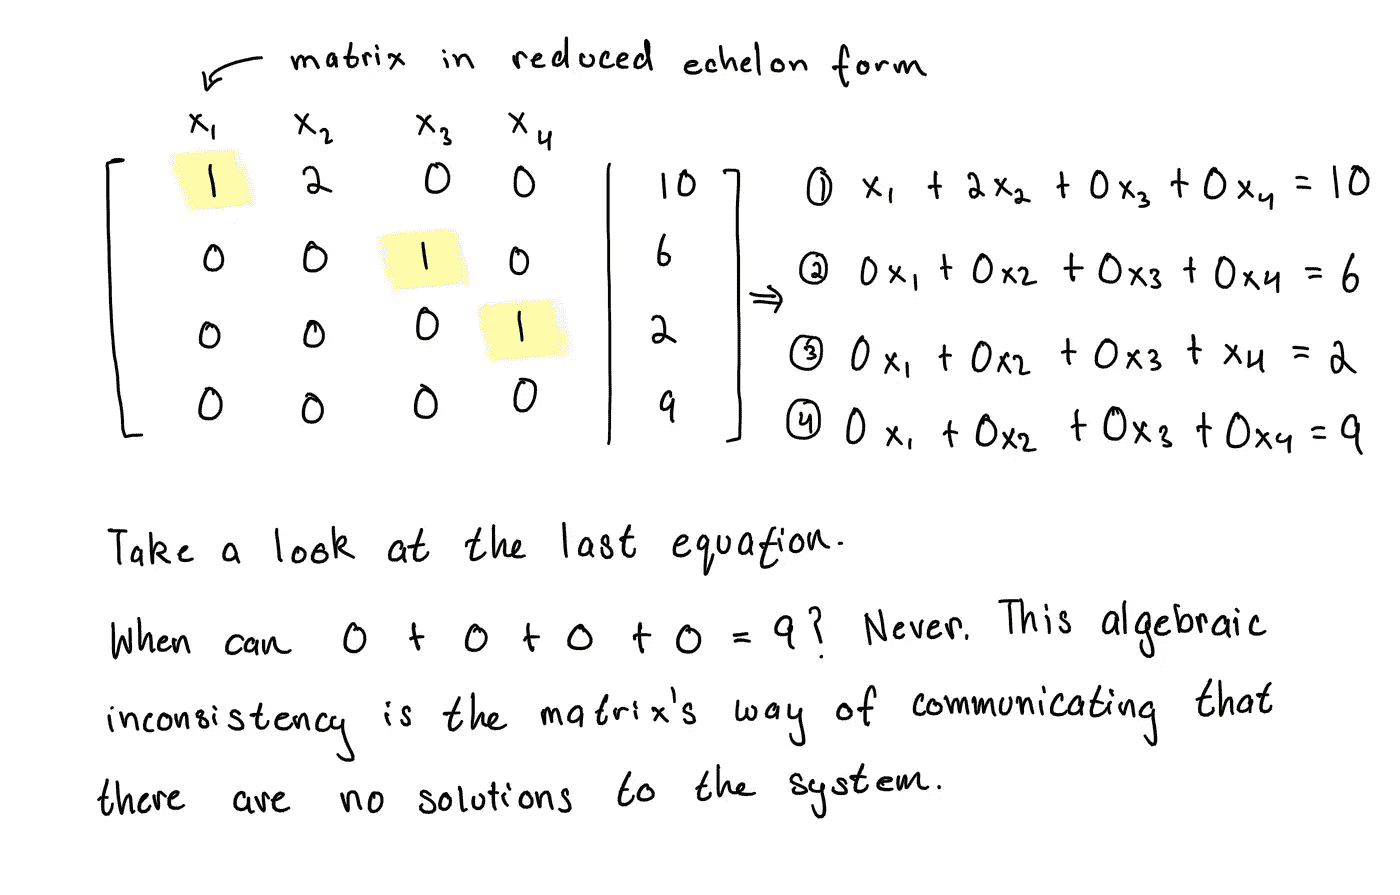 matrix in reduced echelon form
x₁ x₂ x₃ x₄
1 2 0 0 | 10
0 0 1 0 | 6
0 0 0 1 | 2
0 0 0 0 | 9
⇒
① x₁ + 2x₂ + 0x₃ + 0x₄ = 10
② 0x₁ + 0x2 + 0x3 + 0x4 = 6
③ 0x₁ + 0x2 + 0x3 + x4 = 2
④ 0x₁ + 0x2 + 0x3 + 0x4 = 9
Take a look at the last equation.
When can 0 + 0 + 0 + 0 = 9? Never. This algebraic
inconsistency is the matrix's way of communicating that
there are no solutions to the system.